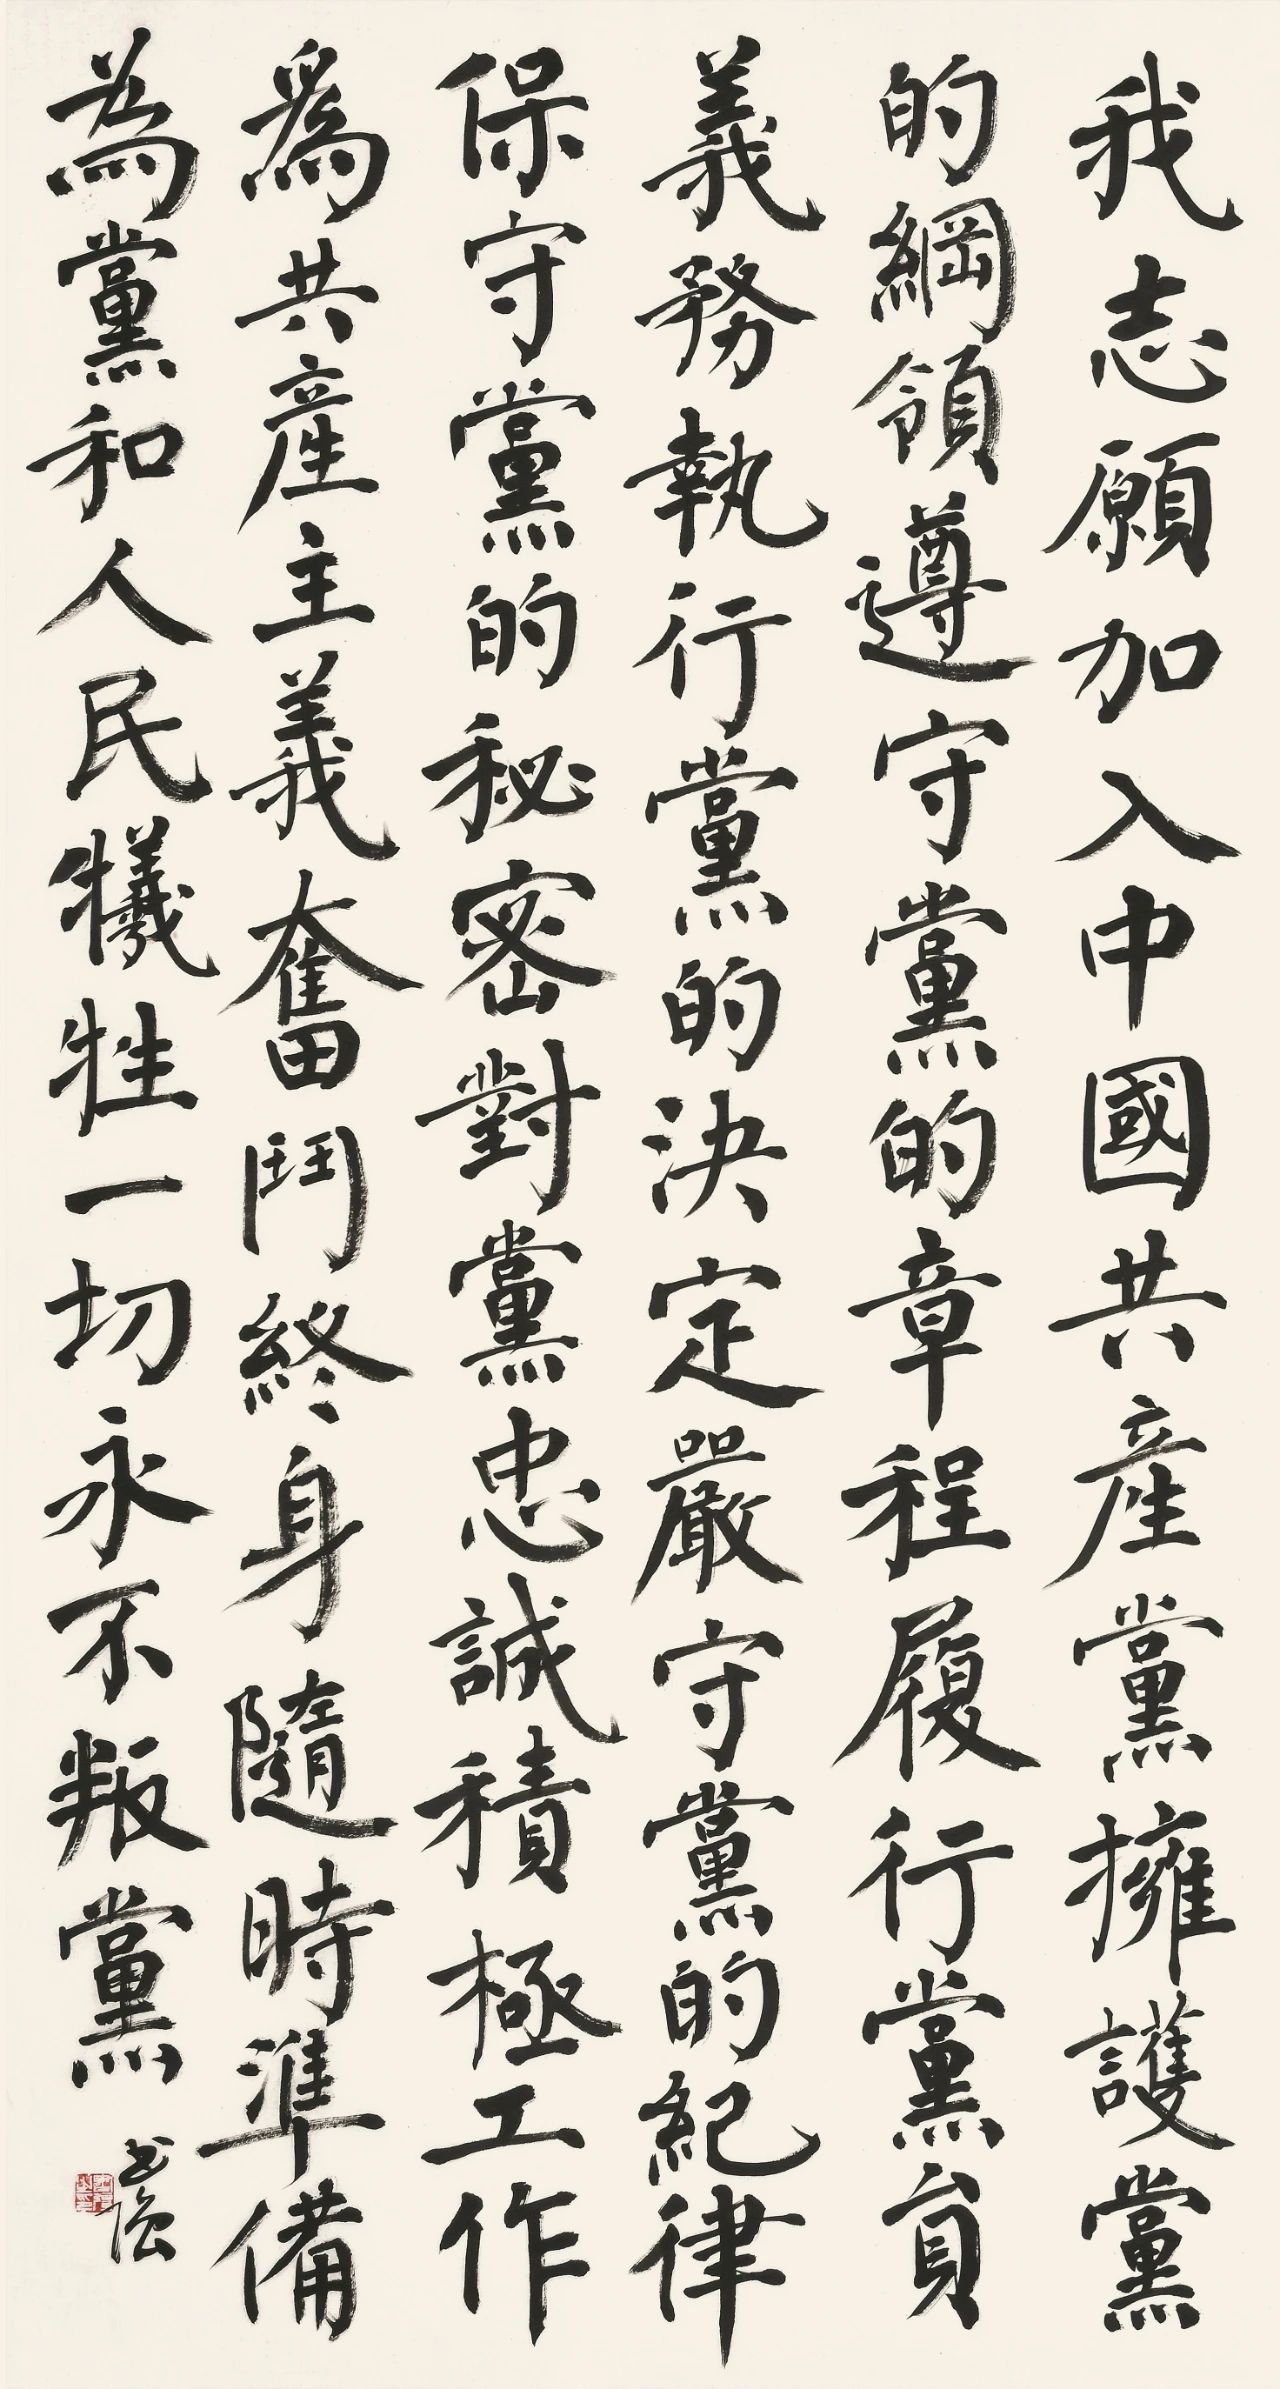 我志願加入中國共產黨擁護黨
的綱領遵守黨的章程履行黨員
義務執行黨的決定嚴守黨的紀律
保守黨的秘密對黨忠誠積極工作
爲共產主義奮鬥終身隨時準備
為黨和人民犧牲一切永不叛黨